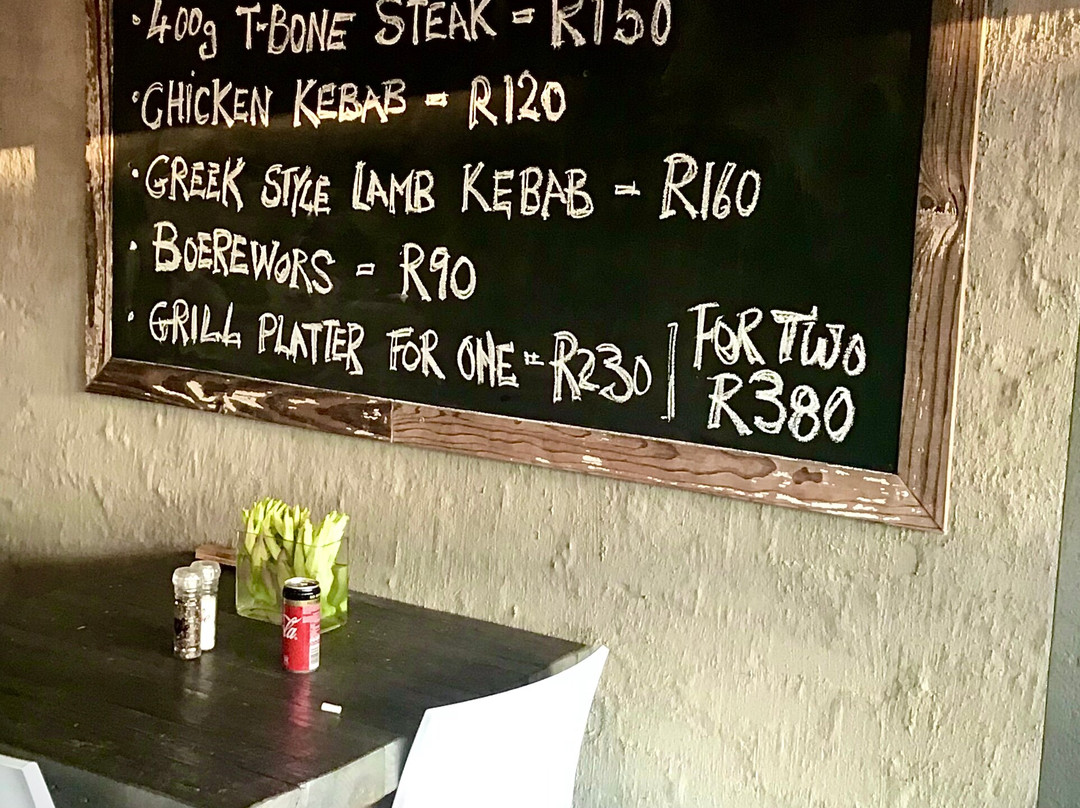 · 400g T-BONE STEAK = R150
· CHICKEN KEBAB = R120
· GREEK STYLE LAMB KEBAB = R160
· BOEREWORS = R90
· GRILL PLATTER FOR ONE = R230 | FOR TWO
R380